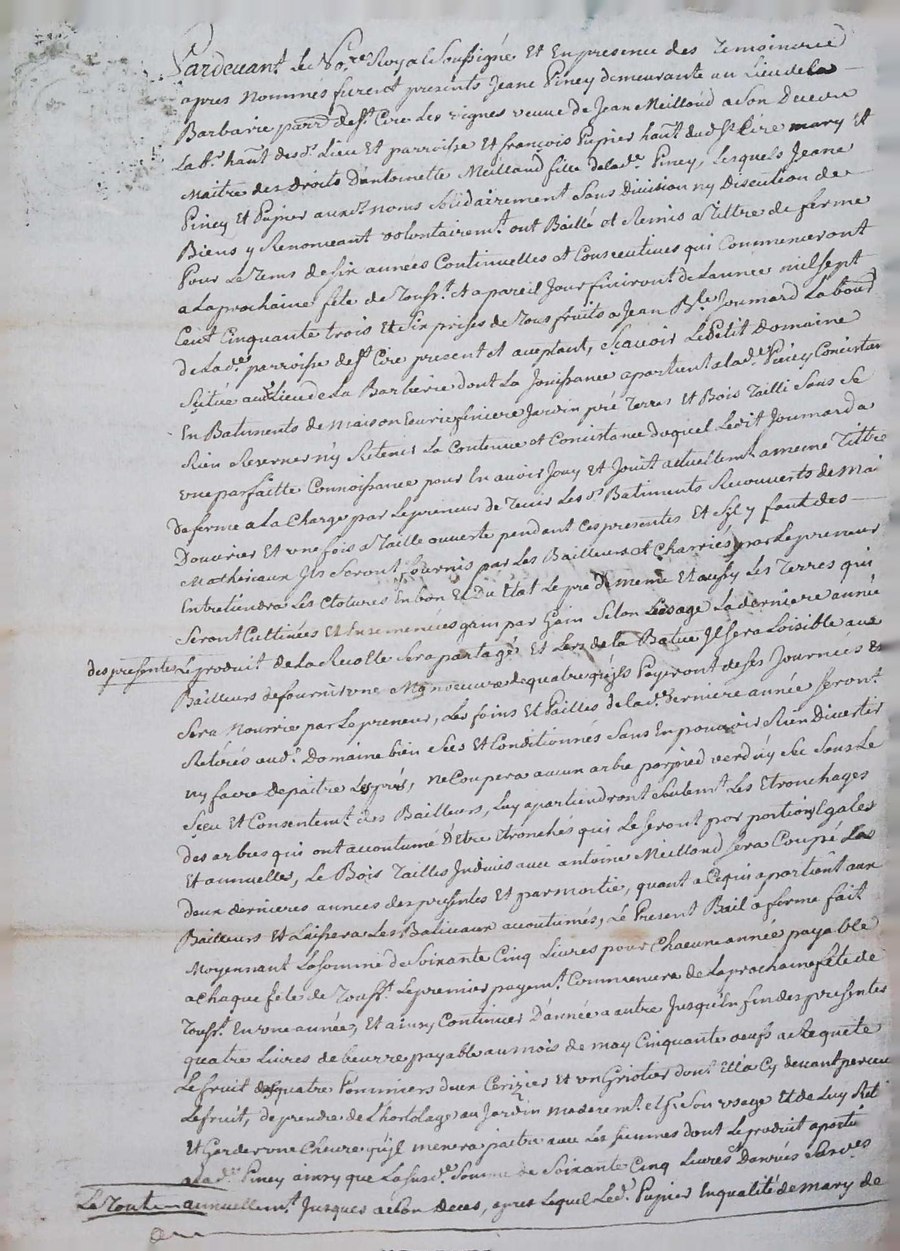 Pardevant le No.re Royal Soussigné Et En presence des Temoins cy
apres Nommes furent presents Jeane Piney demeurante au Lieu de la
Barbarie parr.e de St. Cire Les vignes veuve de Jean Meilland a Son Deceu
Lab.r hañt des d. Lieu Et parroisse Et françois Pupier hañt dud St. Cire mary Et
Maitre des Droits D'antoinette Meilland fille de lad.e Piney, Lesquels Jeane
Piney Et Pupier auxd. noms Solidairement Sans Division ny Discution de
Biens y Renonceant volontairemt. ont Baillé et Remis a Tittre de ferme
Pour Le Tems de Six années Continuelles et Consecutives qui Commenceront
a La prochaine fête de Toussts. Et a pareil Jour finiront de L'année mil sept
Cent Cinquante trois Et Six prises de Tous fruits a Jean Bte. Joumard Labour
de Lad.e parroisse de St. Cire present et aceptant, Sçavoir Le Petit Domaine
Scitué au Lieu de La Barberie dont La Jouissance apartient a lad.e Piney Concistan
En Batiments de Maison Ecurie feniere Jardin pré Terres Et Bois Tailli Sans Se
Rien Reserver ny Retenir La Contenue et Concistance duquel Ledit Joumard a
une parfaitte Connoissance pour En avoir Jouy Et Jouit actuellemt. a meme Tittre
de ferme a La Charge par Le preneur de Tenir Les d. Batiments Recouverts de Mai
Douvrier Et une fois a Taille ouverte pendant Ces presentes Et Syl y faut des
Matheriaux Ils Seront fournis par Les Bailleurs et Charriés par Le preneur
Entretiendra Les Clotures En bon Et Du Etat Le pré de meme Et aussy Les Terres qui
Seront Cultivées Et Ensemencées grain par Grain Selon L'usage La derniere année
des presentes Le produit de La Recolte Sera partagé Et Lors de la Batue Il Sera Loisible aux
Bailleurs de fournir une quatre qu'ils Payeront de Ses Journées Et
Sera Nourrie par Le preneur, Les foins Et Pailles de lad.e derniere année Seront
Retirés aud. Domaine bien Secs Et Conditionnés Sans En pouvoir Rien Divertir
ny faire depaitre Les prés, ne Coupera aucun arbre par pied verd ny Sec Sans Le
Sceu Et Consentemt. des Bailleurs, Luy apartiendront Seulemt. Les Etronchages
des arbres qui ont acoutumé D'Etre Etronchés qui Se feront par portions Egales
Et annuelles, Le Bois Tailles Indivis avec antoine Meilland Sera Coupé Les
deux dernieres années des presentes Et par moitie, quant a Ce qui apartient aux
Bailleurs Et Laissera Les Baliveaux acoutumés, Le Present Bail a ferme fait
Moyennant La Somme de Soixante Cinq Livres pour Chacune année payable
a Chaque fête de Toussts. Le premier payemt. Commencera de La prochaine fête de
Toussts. En une année, Et ainsy Continuer D'année a autre Jusqu'En fin des presentes
quatre Livres de beurre payable au mois de may Cinquante oeufs a Requete
Le fruit des quatre Pommiers deux Ceriziers Et un Griotier dont Ella Cy devant perceu
Le fruit, de prendre de L'hortolage au Jardin moderemt. Son usage Et de Luy
Et Garder une Chevre qu'il menera paitre avec Les Siennes dont Le produit aparté
a lad.e Piney ainsy que La Susd.e Somme de Soixante Cinq Livres Danrées
Le Tout annuellemt. Jusques a Son Deces, apres Lequel Led. Pupier En qualité de Mary de